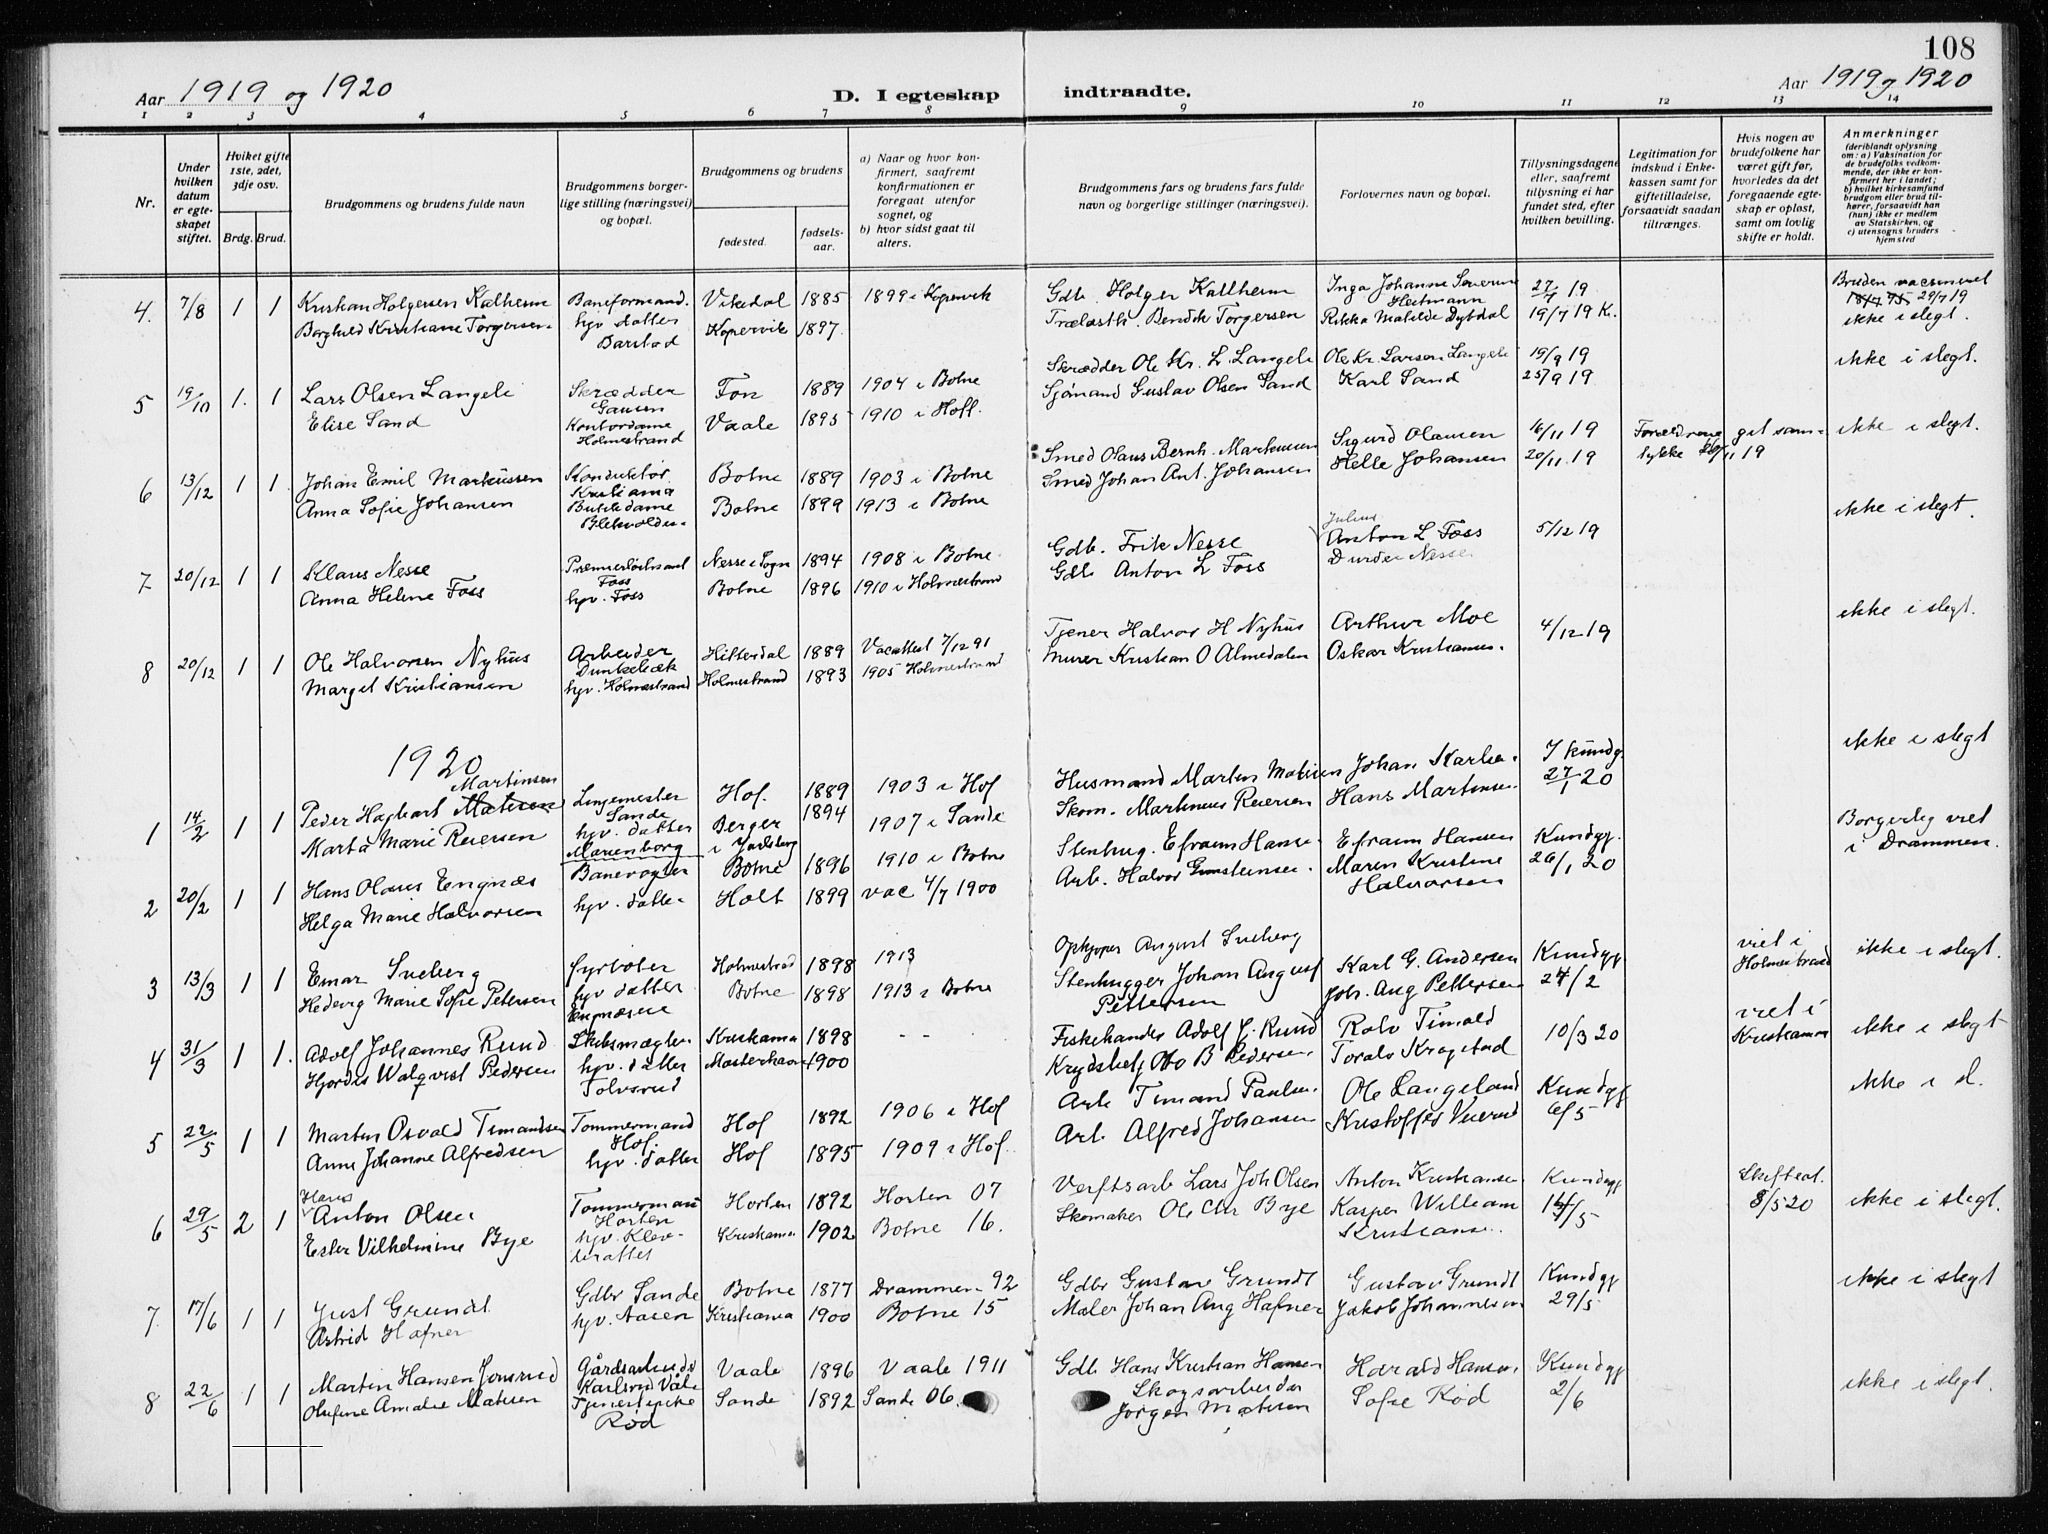 108
Aar 1919 og 1920
D. I egteskap indtraadte.
Aar 1919 og 1920
1 2 3 4 5 6 7 8 9 10 11 12 13 14
Nr.
Under hvilken datum er egteskapet stiftet.
Hviket gifte 1ste, 2det, 3dje osv.
Brdg. Brud.
Brudgommens og brudens fulde navn
Brudgommens borgerlige stilling (næringsvei) og bopæl.
Brudgommens og brudens
fødested.
fødselsaar.
a) Naar og hvor konfirmert, saafremt konfirmationen er foregaaet utenfor sognet, og
b) hvor sidst gaat til alters.
Brudgommens fars og brudens fars fulde navn og borgerlige stillinger (næringsvei).
Forlovernes navn og bopæl.
Tillysningsdagene eller, saafremt tillysning ei har fundet sted, efter hvilken bevilling.
Legitimation for indskud i Enkekassen samt for giftetilladelse, forsaavidt saadan tiltrænges.
Hvis nogen av brudefolkene har været gift før, hvorledes da det foregaaende egteskap er opløst, samt om lovlig skifte er holdt.
Anmerkninger
(deriblandt oplysning om: a) Vaksination for de brudefolks vedkommende, der ikke er konfirmert her i landet; b) hvilket kirkesamfund brudgom eller brud tilhører, forsaavidt han (hun) ikke er medlem av Statskirken, og c) utensogns bruders hjemsted
4. 7/8 1 1 Kristian Holgersen Kalheim Baneformand. Vikedal 1885 1899 i Kopervik Gdb. Holger Kallheim Inga Johanne Severine Heitmann 27/7 19 Bruden vaccineret 29/7 19
Borghild Kristiane Torgersen hjv. datter Barstad Kopervik 1897. Trælasth. Bendik Torgersen Rikka Matilde Dybdal 19/7 19 K. ikke i slegt.
5 19/10 1. 1 Lars Olsen Langeli Skrædder Gausen Fon 1889 1904 i Botne Skrædder Ole Kr. L. Langeli Ole Kr. Larsen Langeli 19/9 19 ikke i slegt.
Elise Sand Kontordame Holmestrand Vaale 1895 1910 i Hoff. Sjømand Gustav Olsen Sand Karl Sand 25/9 19
6 13/12 1 1 Johan Emil Markussen Konduktør Kristiania Botne 1889 1903 i Botne Smed Olaus Bernh. Markussen Sigurd Olausen 16/11 19 Forældrene git samtykke 11 19 ikke i slegt.
Anna Sofie Johansen Butikdame Botne 1899 1913 i Botne Smed Johan Ant. Johansen Helle Johansen 20/11 19
7 20/12 1 1 Klaus Nesse Premierløitnant Foss Nesse i Sogn 1894 1908 i Botne. Gdb. Erik Nesse Julius Anton L Foss 5/12 19 ikke i slegt.
Anna Helene Foss hjv. Foss Botne 1896 1910 i Holmestrand Gdb Anton L Foss Nesse
8 20/12 1 1 Ole Halvorsen Nyhus Arbeider Dunkebæk Hitterdal 1889 Vacattest 7/12 91 Tjener Halvor H Nyhus Arthur Moe 4/12 19 ikke i slegt.
Margit Kristiansen hjv. Holmestrand Holmestrand 1893 1905 Holmestrand Murer Kristian O Almedalen Oskar Kristiansen.
1920
1 14/2 1 1 Peder Hagbart Matisen Martinsen Sande Hof. 1889 1903 i Hof Husmand Marten Matisen Johan Karlsen I kundg. 27/1 20 ikke i slegt
Marta Marie Reiersen hjv. datter Marienborg Berger i Jarlsberg 1894 1907 i Sande Skom. Martinius Reiersen Hans Martinsen
2 20/2 1 1 Hans Olaus Engnæs Banevogter Botne 1896 1910 i Botne Stenhug. Efraim Hansen Efraim Hansen Kundgj. 26/1 20 Borgerlig viet i Drammen.
Helga Marie Halvorsen hjv. datter Holt 1899 vac 4/7 1900 Arb. Halvor Gunsteinsen. Maren Kristine Halvorsen
3 13/3 1 1 Einar Sneberg Fyrbøter Holmestrand 1898 1913 Opkjøper August Sneberg Karl G. Andersen Kundgj 24/2 viet i Holmestrand ikke i slegt.
Hedvig Marie Sofie Petersen hjv datter Engnæsene Botne 1898 1913 i Botne Stenhugger Johan August Pettersen Joh. Aug Pettersen
4 31/3 1 1. Adolf Johannes Rund Skibsmægler Kristiania 1898 - - Fiskehandler Adolf J. Rund Rolv Timald 10/3 20 viet i Kristiania ikke i slegt
Hjordis Walqvist Pedersen hjv. datter Tolvsrud 1900 Otto B Pedersen. Toralv Krogstad
5 22/5 1 1 Marten Osvald Timandsen Tømmermand Hof. Hof 1892 1906 i Hof Arb Timand Paulsen. Ole Langeland Kundgj 6/5 ikke i s.
Anne Johanne Alfredsen hjv. datter Hof 1895 1909 i Hof. Arb. Alfred Johansen Kristoffer
6 29/5 2 1 Hans Anton Olsen Tømmermand Horten Horten 1892 Horten 07 Verftsarb Lars Joh Olsen Anton Kristiansen Kundgj 14/5 Skifteat. 8/5 20 ikke i slegt.
Ester Vilhelmine Bye hjv. Kristiania 1902 Botne 16. Skomaker Ole Chr Bye Kasper William Kristiansen.
7. 17/6 1 1 Just Grundt Gdbr Sande Botne 1877 Drammen 92 Gdbr Gustav Grundt Gustav Grundt Kundgj 29/5 ikke i slegt
Astrid Hafner hjv. Aasen Kristiania 1900 Botne 15 Maler Johan Aug Hafner Jakob Johannesen
8 22/6 1 1 Martin Hansen Gårdsarbeider Karlsrud Våle Vaale 1896 Vaale 1911 Gdb Hans Kristian Hansen Harald Hansen. Kundgj 2/6 ikke i slegt.
Olufine Amalie Matisen Tjenestepike Rød Sande 1892 Sande 06. Skogsarbeider Jørgen Matisen Sofie Rød